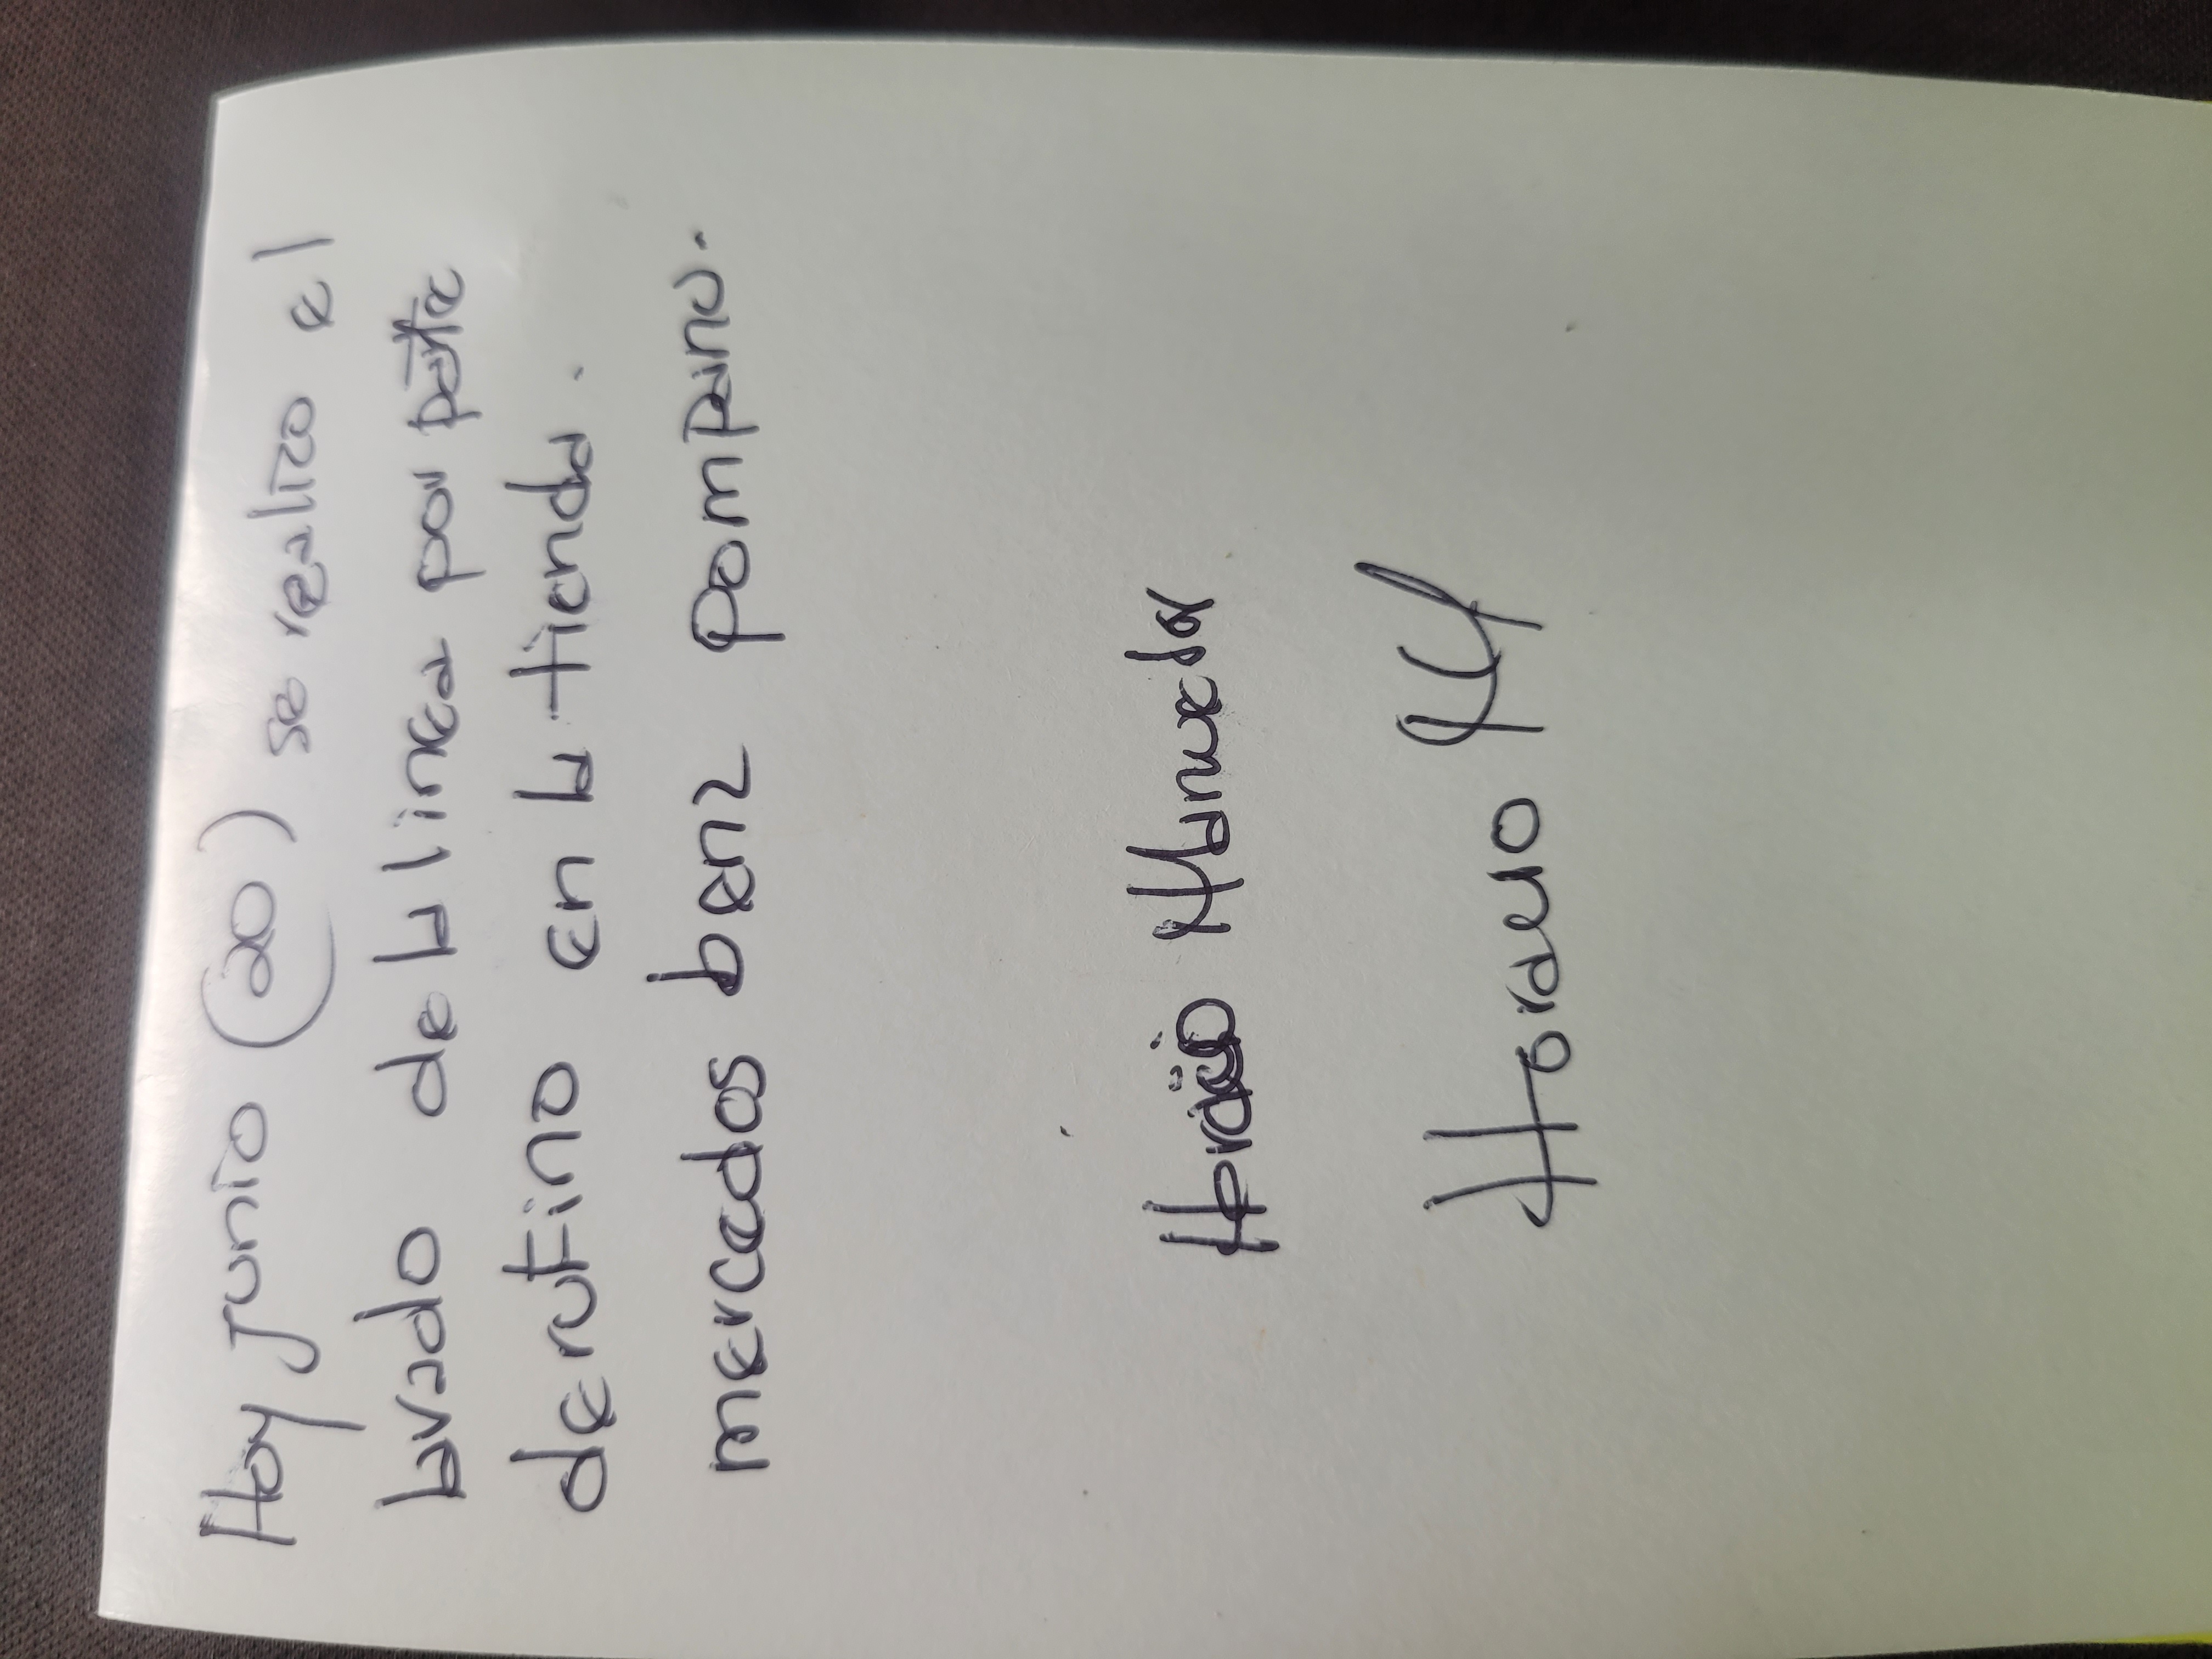 Hoy Junio (20) se realizo el
lavado de la linea por parte
de rufino en la tienda.
mercados benz pompano.
Horacio
Horacio